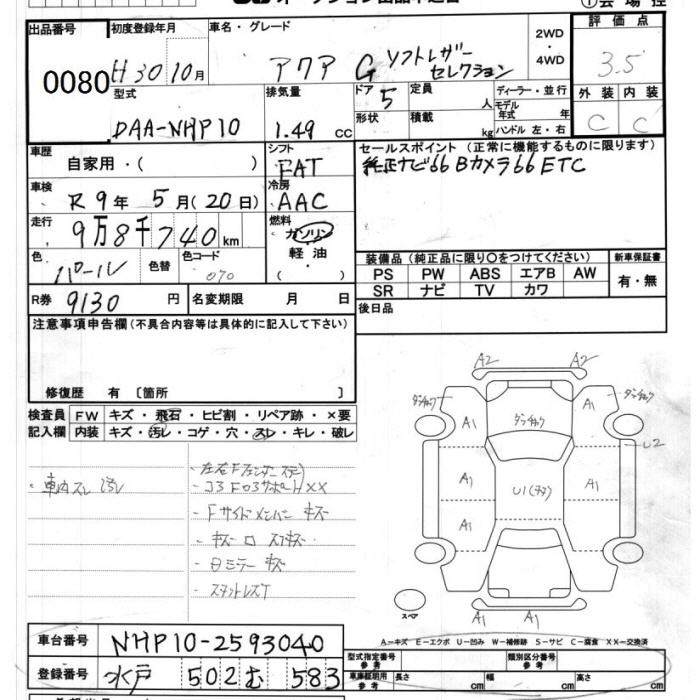 出品番号 0080
初度登録年月 H30 10月
車名・グレード アクア G ソフトレザーセレクション
2WD・4WD
評価点 3.5
型式 DAA-NHP10
排気量 1.49 cc
ドア 5
形状
定員 人
積載 kg
ディーラー・並行
モデル年式 年
ハンドル 左・右
外装 C
内装 C
車歴 自家用・( )
シフト FAT
セールスポイント (正常に機能するものに限ります)
純正ナビ66 Bカメラ66 ETC
車検 R9年 5月(20日)
冷房 AAC
走行 9万8千740km
燃料 ガソリン 軽油・( )
色 パール
色替
色コード 070
装備品 (純正品に限り○をつけてください)
新車保証書
PS PW ABS エアB AW
有・無
SR ナビ TV カワ
R券 9130円
名変期限 月 日
後日品
注意事項申告欄 (不具合内容等は具体的に記入して下さい)
修復歴 有 〔箇所 〕
検査員記入欄
FW キズ・飛石・ヒビ割・リペア跡・×要
内装 キズ・汚レ・コゲ・穴・スレ・キレ・破レ
・車内スレ 汚レ
・Fサイドメンバー キズ
A2 A2
A1 A1
U2
A1 A1
U1
A1 A1
A1 A1
スペア
A-キズ E-エクボ U-凹み W-補修跡 S-サビ C-腐食 XX-交換済
車台番号 NHP10-2593040
型式指定番号 参考
類別区分番号 参考
登録番号 水戸 502 む 583
車庫証明用 参考 長さ cm 幅 cm 高さ cm